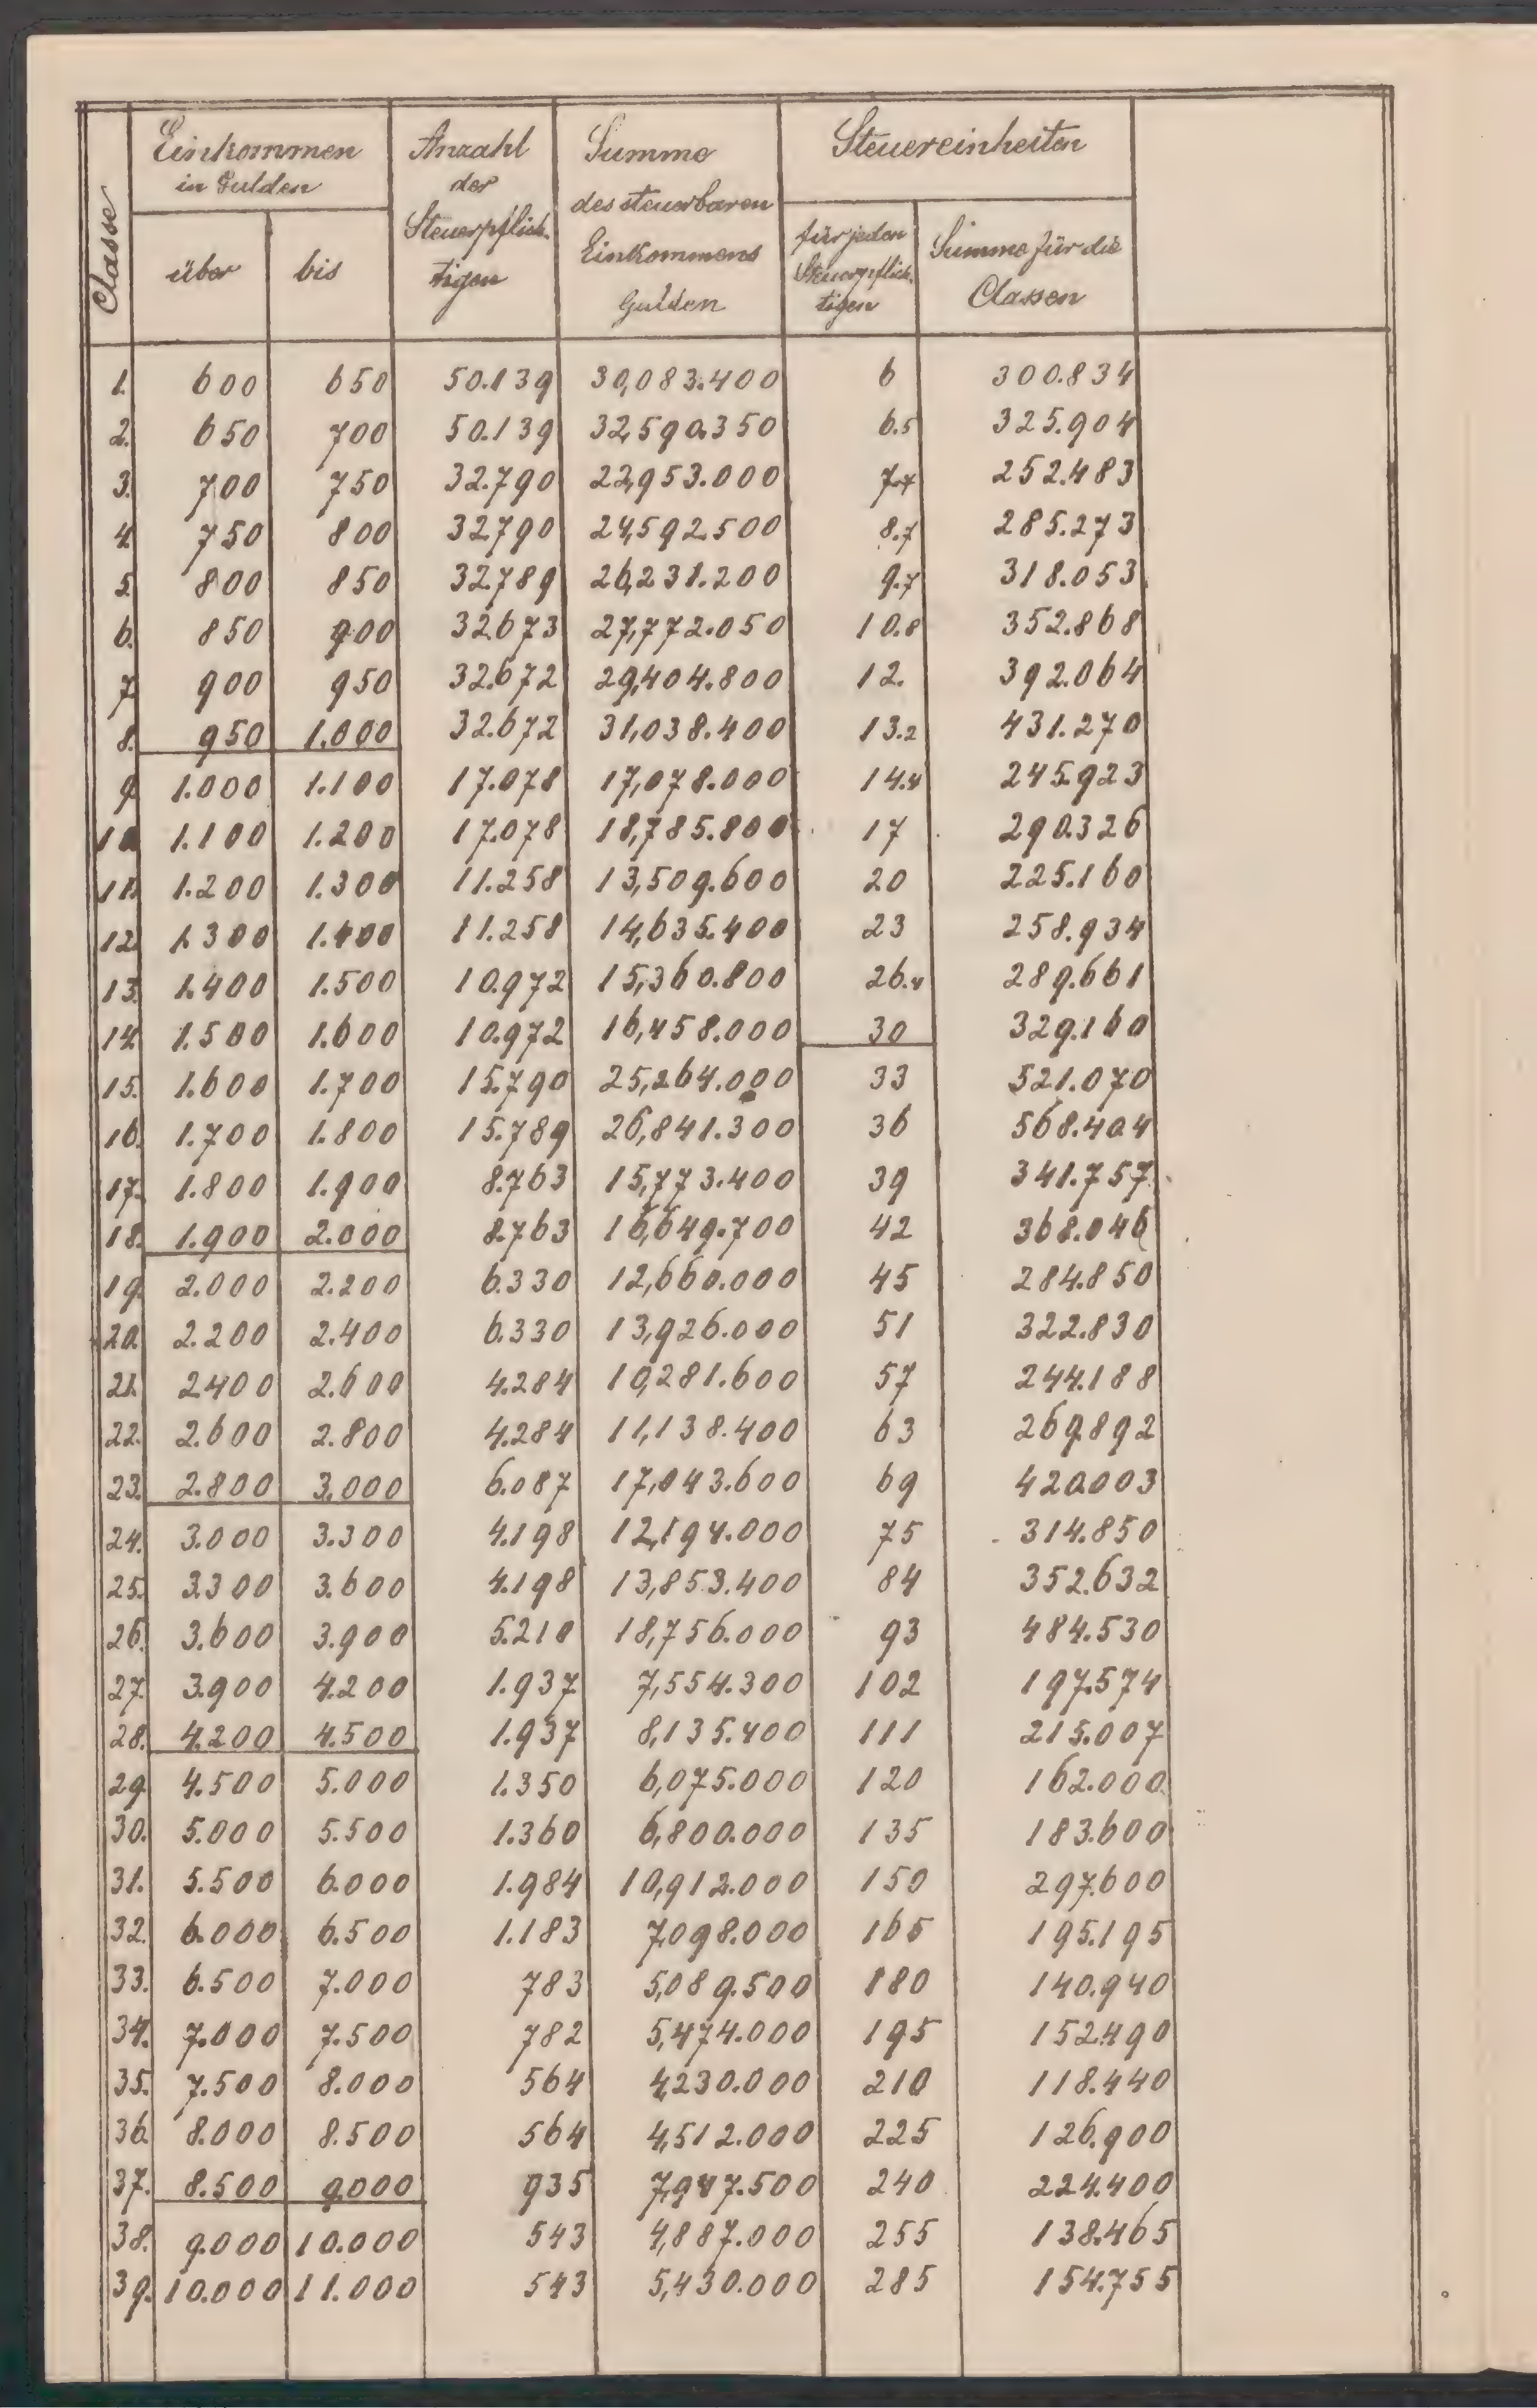 Classe
Einkommen
in Gulden
über
bis
Anzahl
der
Steuerpflich-
tigen
Summe
des steuerbaren
Einkommens
Gulden
Steuereinheiten
für jeden
Steuerpflich-
tigen
Summe für die
Classen
1. 600 650 50.139 30,083.400 6 300.834
2. 650 700 50.139 32,590.350 6.5 325.904
3. 700 750 32.790 22,953.000 7.7 252.483
4. 750 800 32.790 24,592.500 8.7 285.273
5. 800 850 32.789 26,231.200 9.7 318.053
6. 850 900 32.673 27,772.050 10.8 352.868
7. 900 950 32.672 29,404.800 12. 392.064
8. 950 1.000 32.672 31,038.400 13.2 431.270
9. 1.000 1.100 17.078 17,078.000 14.4 245.923
10. 1.100 1.200 17.078 18,785.800 17 290.326
11. 1.200 1.300 11.258 13,509.600 20 225.160
12. 1.300 1.400 11.258 14,635.400 23 258.934
13. 1.400 1.500 10.972 15,360.800 26.4 289.661
14. 1.500 1.600 10.972 16,458.000 30 329.160
15. 1.600 1.700 15.790 25,264.000 33 521.070
16. 1.700 1.800 15.789 26,841.300 36 568.404
17. 1.800 1.900 8.763 15,773.400 39 341.757
18. 1.900 2.000 8.763 16,649.700 42 368.046
19. 2.000 2.200 6.330 12,660.000 45 284.850
20. 2.200 2.400 6.330 13,926.000 51 322.830
21. 2.400 2.600 4.284 10,281.600 57 244.188
22. 2.600 2.800 4.284 11,138.400 63 269.892
23. 2.800 3.000 6.087 17,043.600 69 420.003
24. 3.000 3.300 4.198 12,194.000 75 314.850
25. 3.300 3.600 4.198 13,853.400 84 352.632
26. 3.600 3.900 5.210 18,756.000 93 484.530
27. 3.900 4.200 1.937 7,554.300 102 197.574
28. 4.200 4.500 1.937 8,135.400 111 215.007
29. 4.500 5.000 1.350 6,075.000 120 162.000
30. 5.000 5.500 1.360 6,800.000 135 183.600
31. 5.500 6.000 1.984 10,912.000 150 297.600
32. 6.000 6.500 1.183 7,098.000 165 195.195
33. 6.500 7.000 783 5,089.500 180 140.940
34. 7.000 7.500 782 5,474.000 195 152.490
35. 7.500 8.000 564 4,230.000 210 118.440
36. 8.000 8.500 564 4,512.000 225 126.900
37. 8.500 9.000 935 7,947.500 240 224.400
38. 9.000 10.000 543 4,887.000 255 138.465
39. 10.000 11.000 543 5,430.000 285 154.755